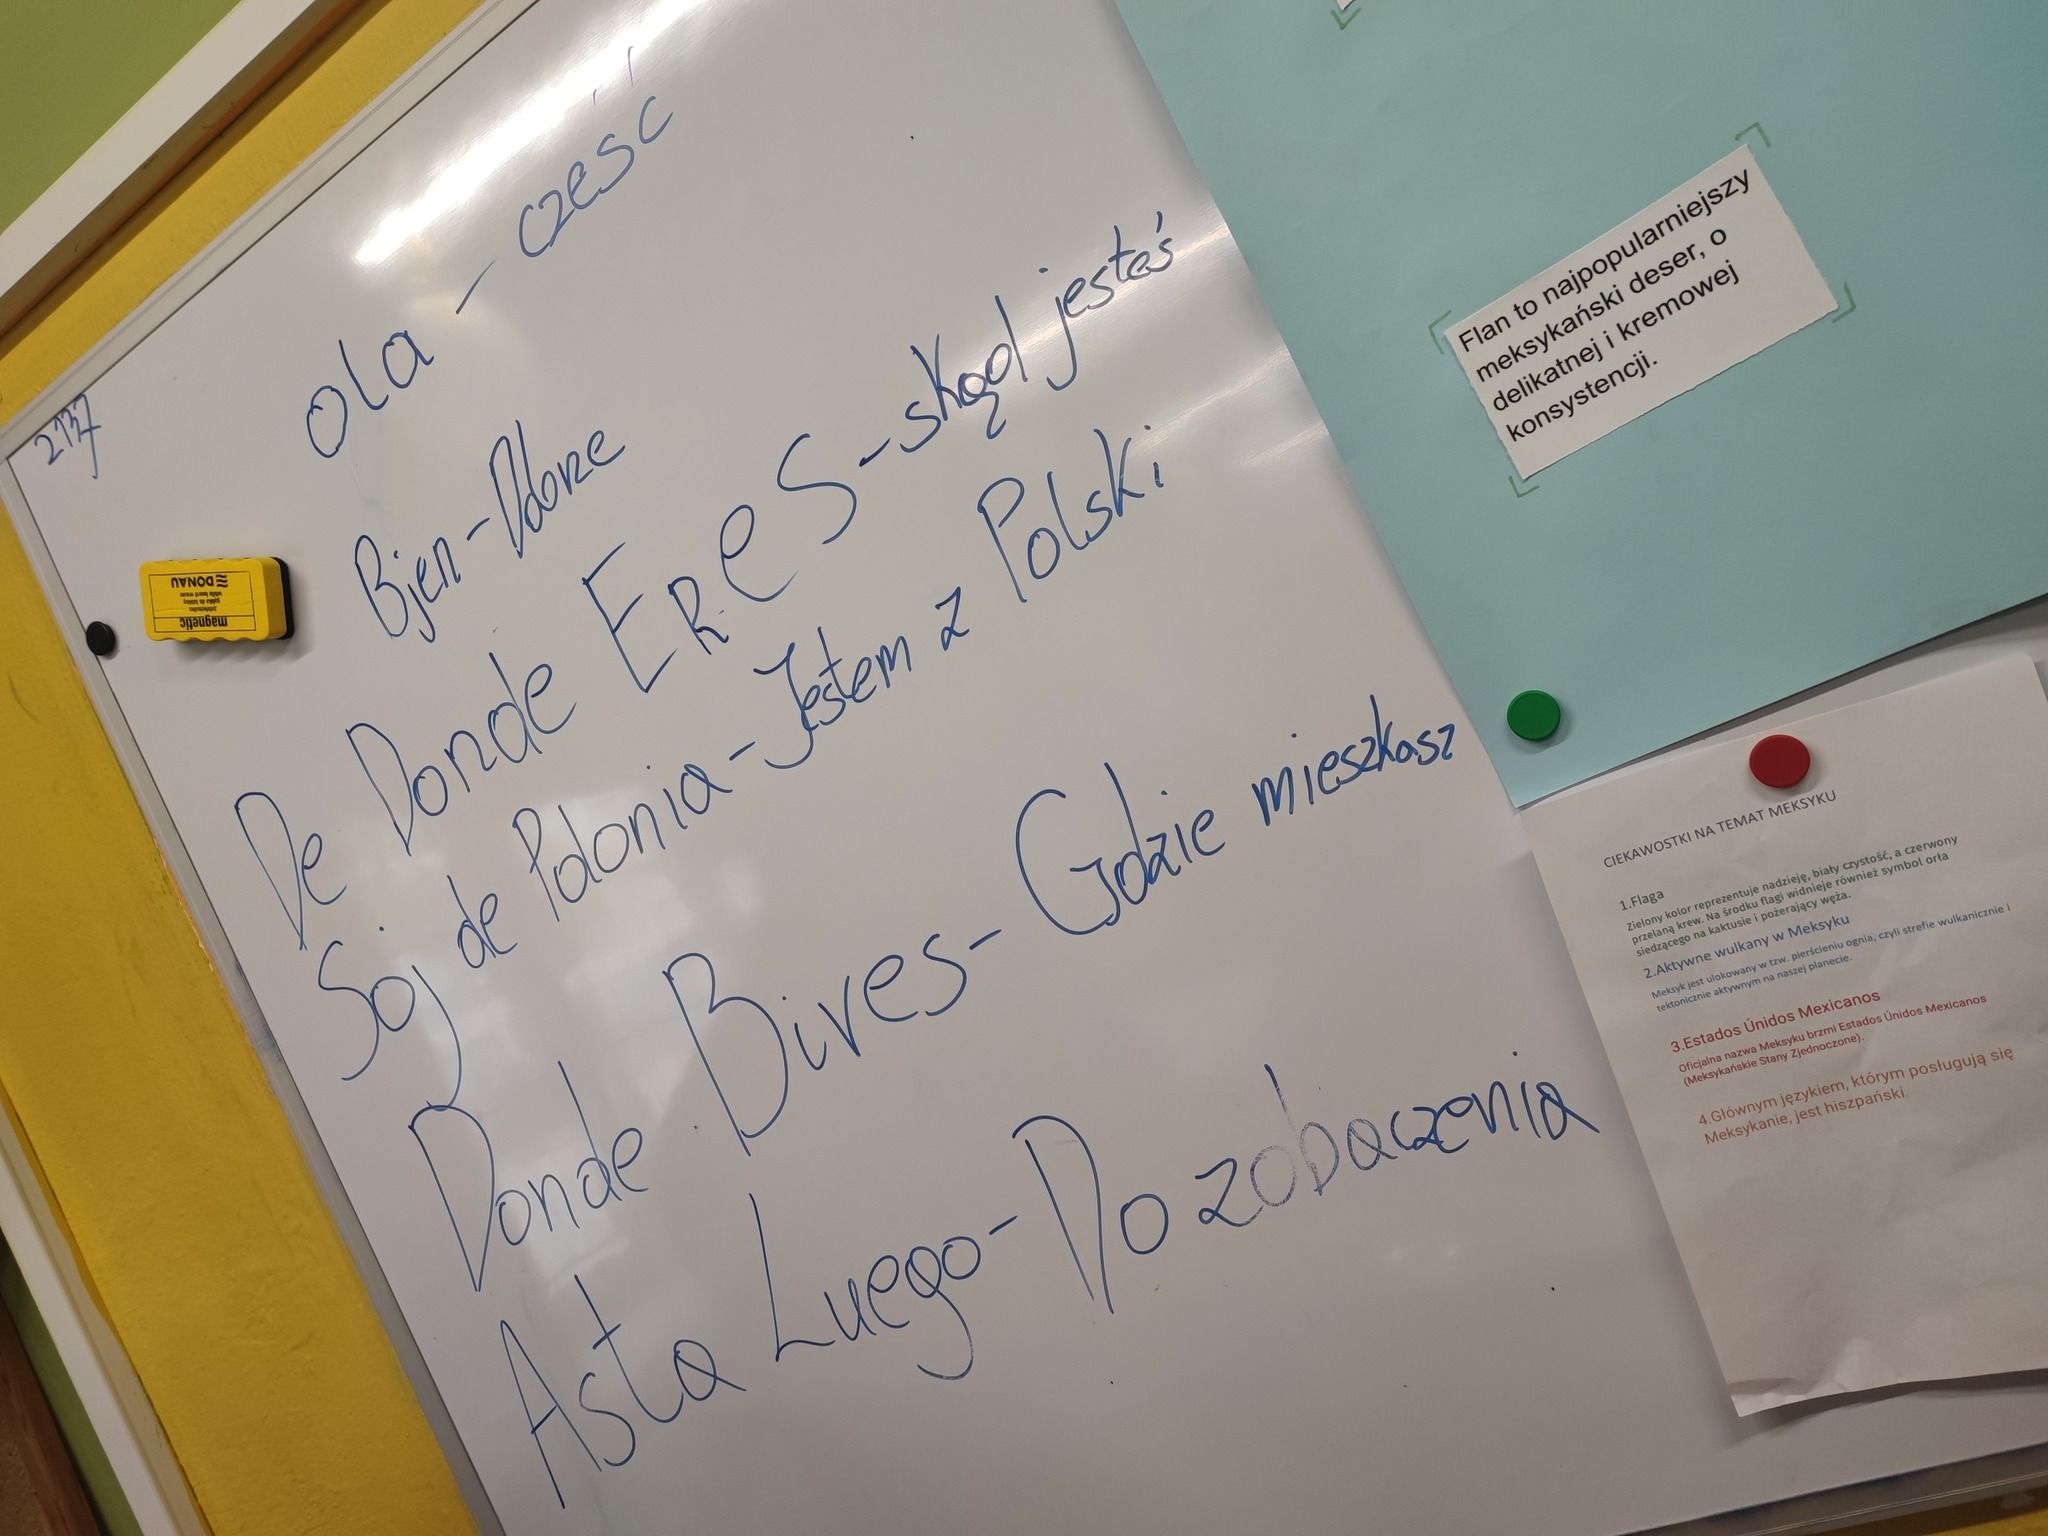 2137
Ola - cześć
Bjen - Dobrze
De Donde EReS - skąd jesteś
Soj de Polonia - Jestem z Polski
Donde Bives - Gdzie mieszkasz
Asta Luego - Do zobaczenia
magnetic
DONAU
Flan to najpopularniejszy
meksykański deser, o
delikatnej i kremowej
konsystencji.
CIEKAWOSTKI NA TEMAT MEKSYKU
1.Flaga
Zielony kolor reprezentuje nadzieję, biały czystość, a czerwony
przelaną krew. Na środku flagi widnieje również symbol orła
siedzącego na kaktusie i pożerający węża.
2.Aktywne wulkany w Meksyku
Meksyk jest ulokowany w tzw. pierścieniu ognia, czyli strefie wulkanicznie i
tektonicznie aktywnym na naszej planecie.
3.Estados Únidos Mexicanos
Oficjalna nazwa Meksyku brzmi Estados Únidos Mexicanos
(Meksykańskie Stany Zjednoczone).
4.Głównym językiem, którym posługują się
Meksykanie, jest hiszpański.